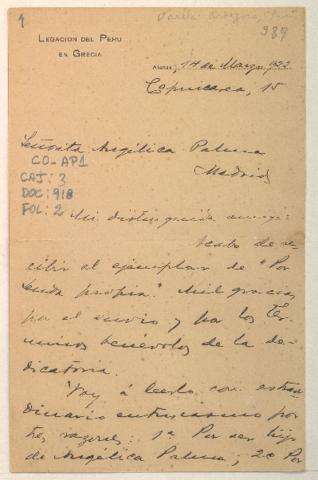 1
Varela Orbegoso, Luis
389
LEGACION DEL PERU
EN GRECIA
Atenas, 14 de Marzo 922
15
Señorita Angélica Palma
Madrid
CO-AP1
CAJ: 3
DOC: 918
FOL: 2
Mi distinguida amiga:
Acabo de re-
cibir el ejemplar de "Por
senda propia". Mil gracias
por el envío y por los tér-
minos benévolos de la de-
dicatoria.
Voy á leerlo con extraor
dinario entusiasmo por
tres razones: 1ª Por ser hijo
de Angélica Palma; 2ª Por